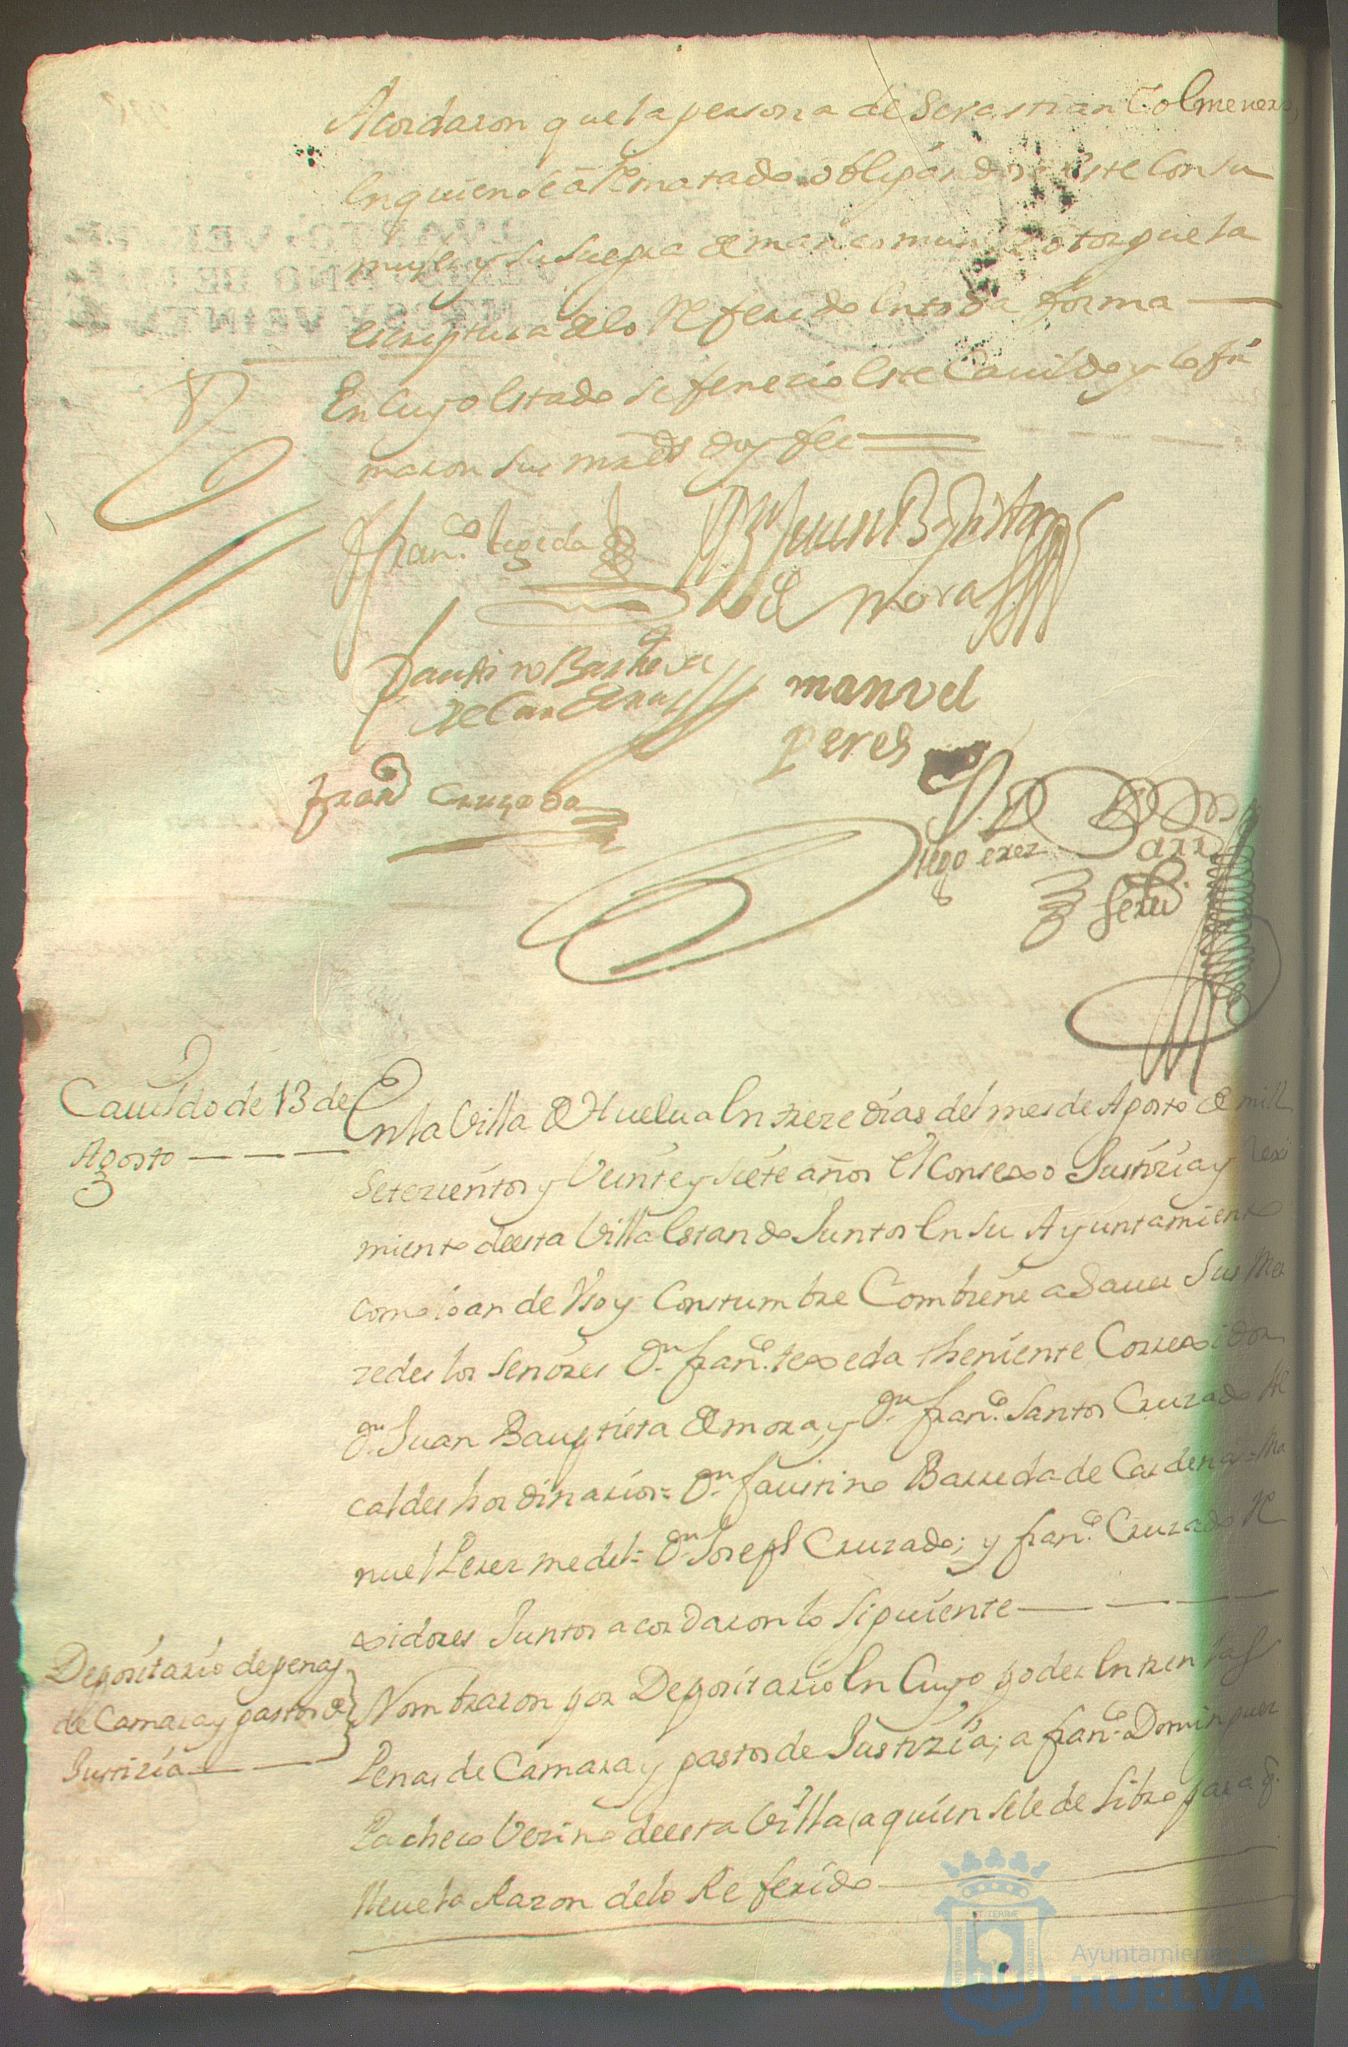 Acordaron que la persona de Sevastian Colmenero,
en quien se a Rematado obligandose este con su
muger y su suegra de mancomun otorgue la
escriptura de lo Referido en toda forma
En cuyo estado se fenecio este Cauildo y lo fir
maron sus mrds doy fee
Franco. tegeda
Dn Juan Baptista
de Mora
Faustino Barreda
de Cardenas
manuel
peres
Franco Cruzado
Diego Perez
Cauildo de 13 de
Agosto
En la Villa de Huelua en treze dias del mes de Agosto de mill
setezientos y Veinte y siete años el Consexo Justizia y Rexi
miento de esta Villa estando Juntos en su Ayuntamiento
como lo an de Vso y Constumbre Combiene a Sauer Sus Mer
zedes los Señores Dn. franco. texeda theniente Correxidor
Dn. Juan Bauptista de mora, y Dn. franco. Santos Cruzado Al
caldes hordinarios= Dn. faustino Barreda de Cardenas= Ma
nuel Perez medel= Dn. Joseph Cruzado; y franco. Cruzado Re
xidores Juntos acordaron lo siguiente
Depositario de penas
de Camara y gastos de
Justizia
Nombraron por Depositario en Cuyo poder entren las
Penas de Camara y gastos de Justizia; a franco. Dominguez
Pacheco Vezino de esta Villa, a quien se le de Libro para q.
lleue la Razon de lo Referido
Ayuntamiento de
HUELVA